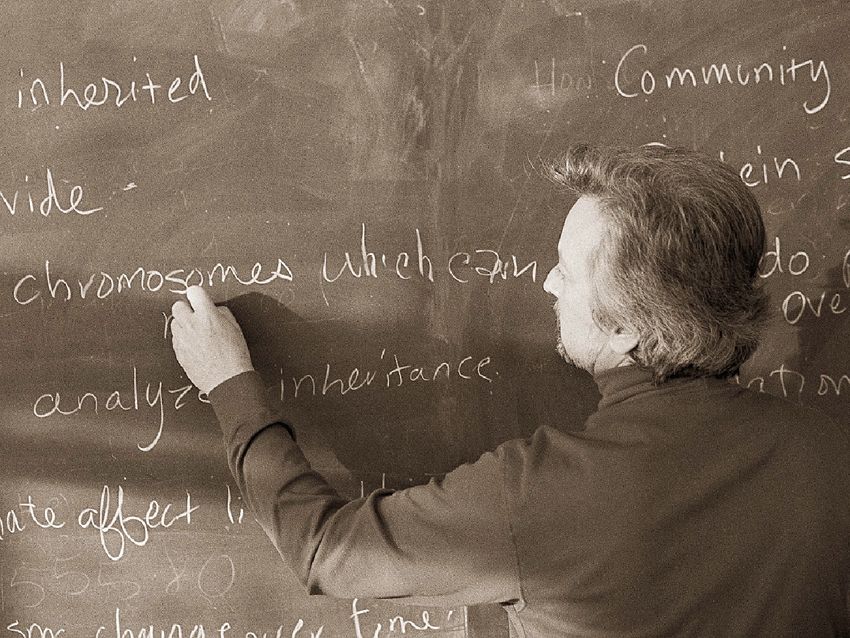 inherited
How Community
vide
ein s
chromosomes which can
do
over
analyze inheritance.
ate affect li
555 80
sm change over time.